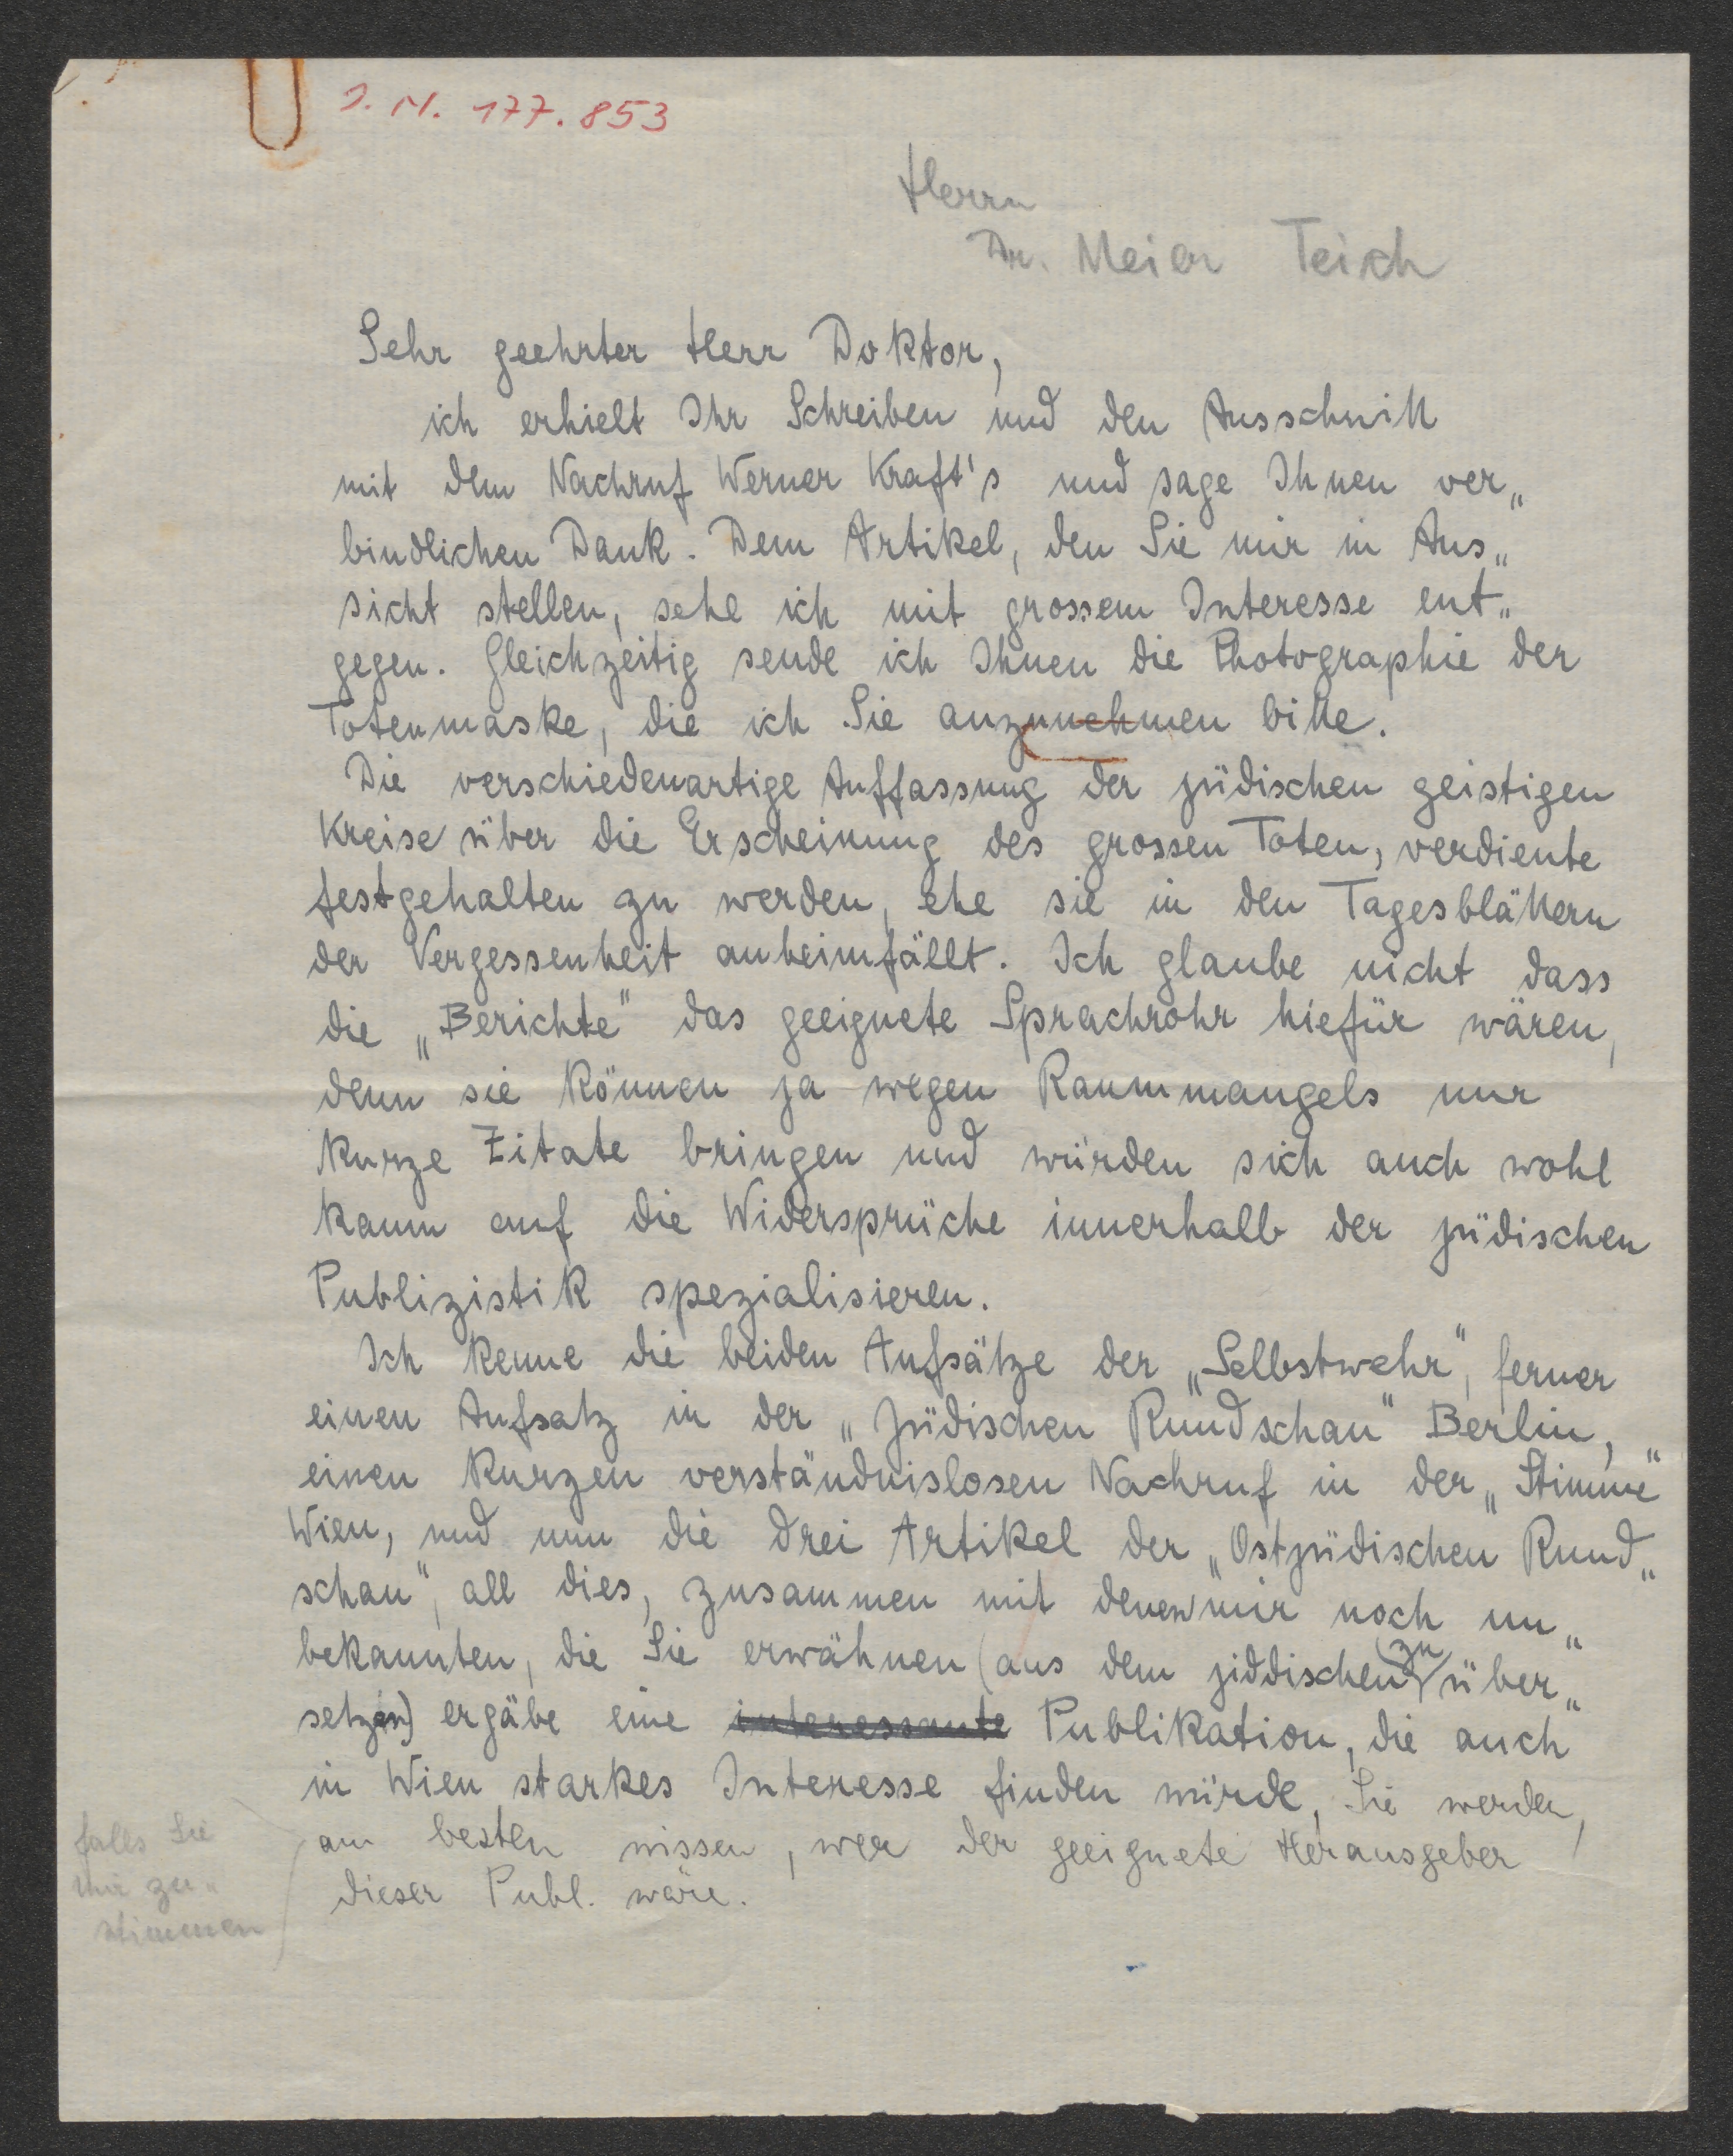 I. N. 177.853
Herrn
Dr. Meier Teich
Sehr geehrter Herr Doktor,
ich erhielt Ihr Schreiben und den Ausschnitt
mit dem Nachruf Werner Kraft's und sage Ihnen ver„
bindlichen Dank. Dem Artikel, den Sie mir in Aus„
sicht stellen, sehe ich mit grossem Interesse ent„
gegen. Gleichzeitig sende ich Ihnen die Photographie der
Totenmaske, die ich Sie anzunehmen bitte.
Die verschiedenartige Auffassung der jüdischen geistigen
Kreise über die Erscheinung des grossen Toten, verdiente
festgehalten zu werden, ehe sie in den Tagesblättern
der Vergessenheit anheimfällt. Ich glaube nicht dass
die „Berichte" das geeignete Sprachrohr hiefür wären,
denn sie können ja wegen Raummangels nur
kurze Zitate bringen und würden sich auch wohl
kaum auf die Widersprüche innerhalb der jüdischen
Publizistik spezialisieren.
Ich kenne die beiden Aufsätze der „Selbstwehr", ferner
einen Aufsatz in der „Jüdischen Rundschau" Berlin,
einen kurzen verständnislosen Nachruf in der „Stimme"
Wien, und nun die drei Artikel der „Ostjüdischen Rund„
schau", all dies, zusammen mit denen mir noch un„
bekannten, die Sie erwähnen (aus dem jiddischen zu über„
setzen) ergäbe eine interessante Publikation, die auch
in Wien starkes Interesse finden würde, Sie werden,
falls Sie
mir zu„
stimmen
am besten wissen, wer der geeignete Herausgeber
dieser Publ. wäre.